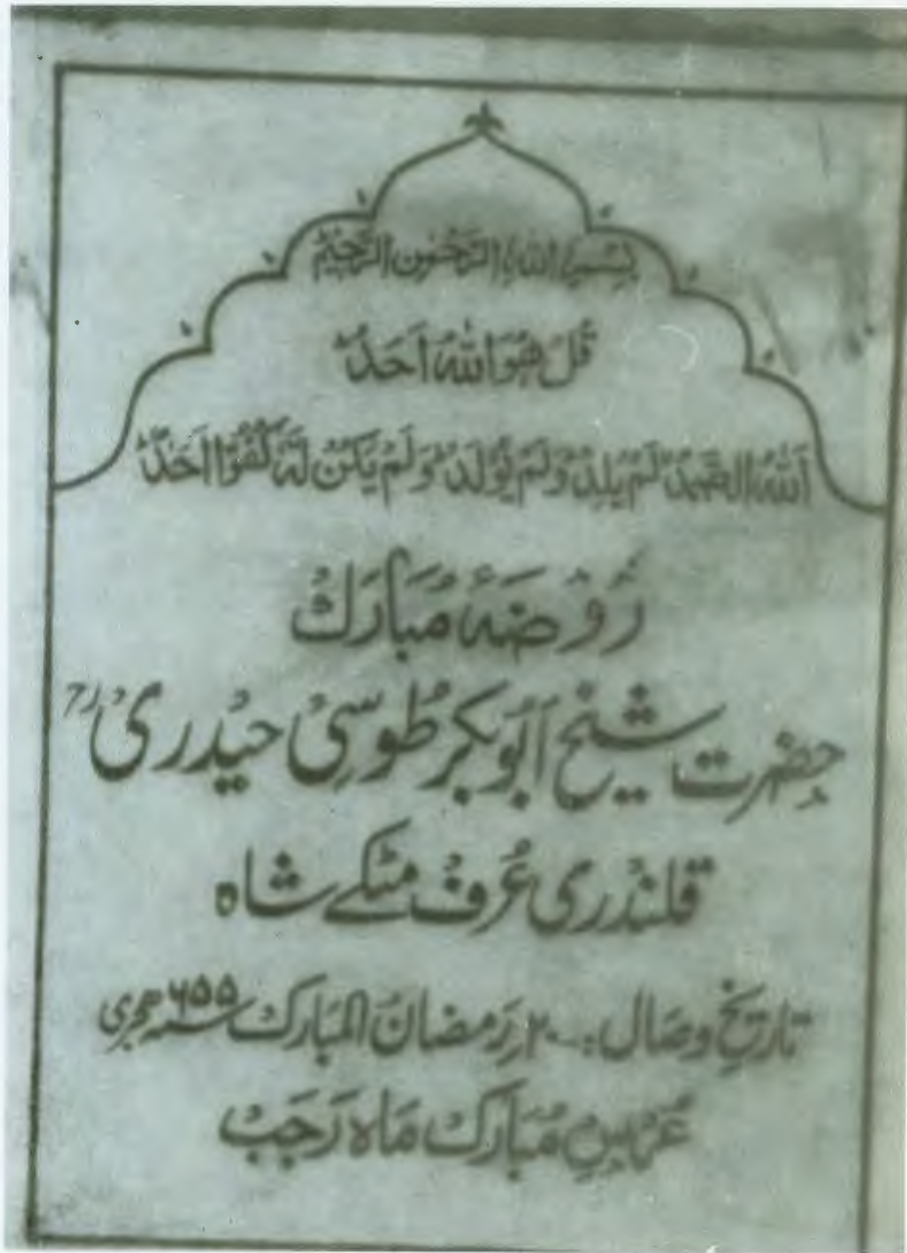 بِسْمِ اللهِ الرَّحْمٰنِ الرَّحِيْمِ
قُلْ هُوَ اللهُ اَحَدٌ
اَللهُ الصَّمَدُ لَمْ يَلِدْ وَلَمْ يُوْلَدْ وَلَمْ يَكُنْ لَّهٗ كُفُوًا اَحَدٌ
رَوْضَۂ مُبَارَکْ
حضرت شیخ ابُوبکر طُوسِیْ حیْدریؒ
قلنْدری عُرفْ مٹکے شاہ
تاریخِ وصَال :۔ ۲۰ رَمضانُ المبَارکْ ۶۵۵ سنہ ھجری
عُرسِ مُبَارکْ مَاہ رَجَبْ